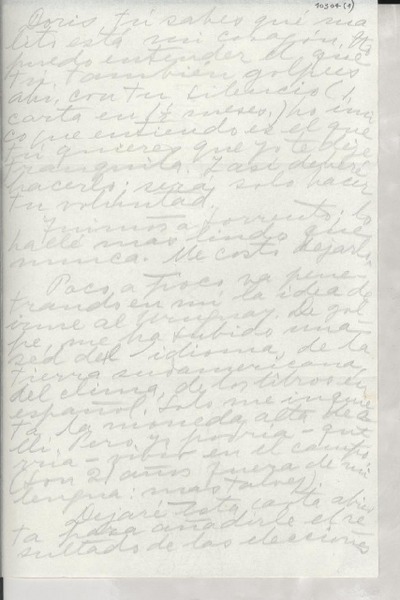 10304 (1)
Doris, tú sabes qué ma
lito está mi corazón. No
puedo entender el que
tú también golpees
ahí, con tu silencio (1
carta en 1½ meses.) Lo úni
co que entiendo es el que
tú quieres que yo te deje
tranquila. Y así deberé
hacerlo; será solo hacer
tu voluntad.
Fuimos a Sorrento; lo
hallé más lindo que
nunca. Me costó dejarlo.
Poco a poco va pene-
trando en mí la idea de
irme al Uruguay. De gol
pe, me ha subido una
sed del idioma, de la
tierra suramericana,
del clima, de los libros en
español. Solo me inquie
ta la moneda alta de a
llí. Pero yo podría - que
rría - vivir en el campo
(Son 21 años fuera de mi
lengua: mas talvez).
Dejaré esta carta abier
ta para añadirle el re
sultado de las elecciones